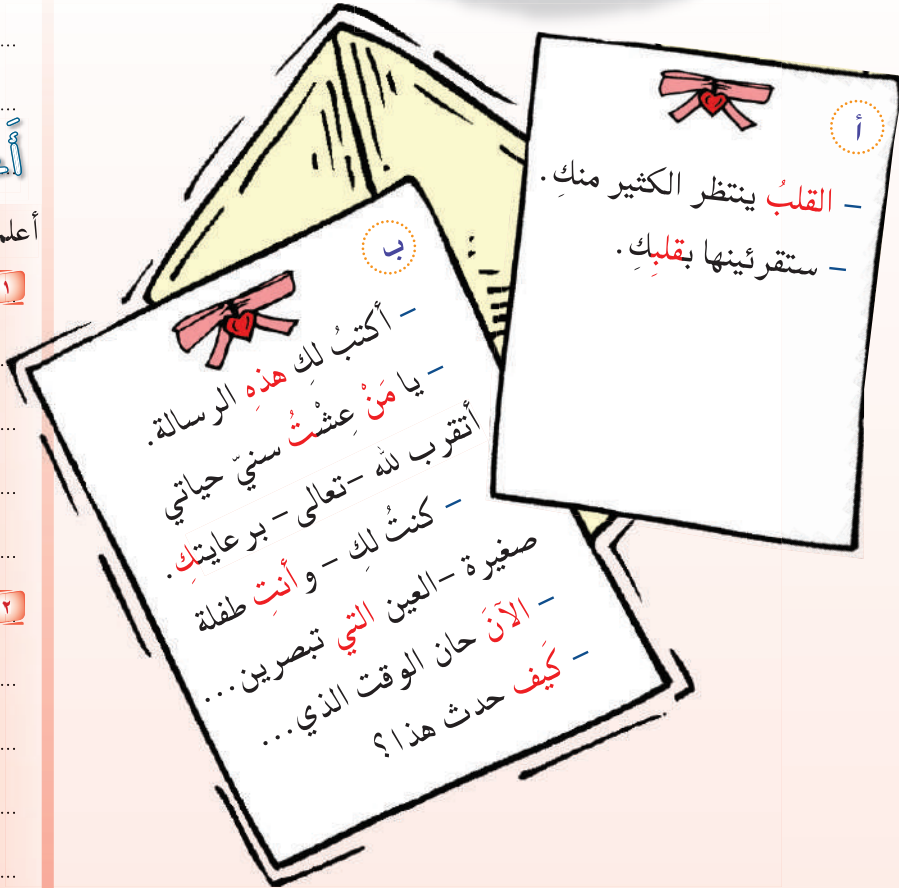 أ
– القلبُ ينتظر الكثير منكِ.
– ستقرئينها بقلبِكِ.
ب
– أكتبُ لكِ هذهِ الرسالة.
– يا مَنْ عِشْتُ سنيّ حياتي
أتقرب لله –تعالى– برعايتكِ.
– كنتُ لكِ – و أنتِ طفلة
صغيرة –العين التي تبصرين...
– الآنَ حان الوقت الذي...
– كَيفَ حدث هذا؟
١
٢